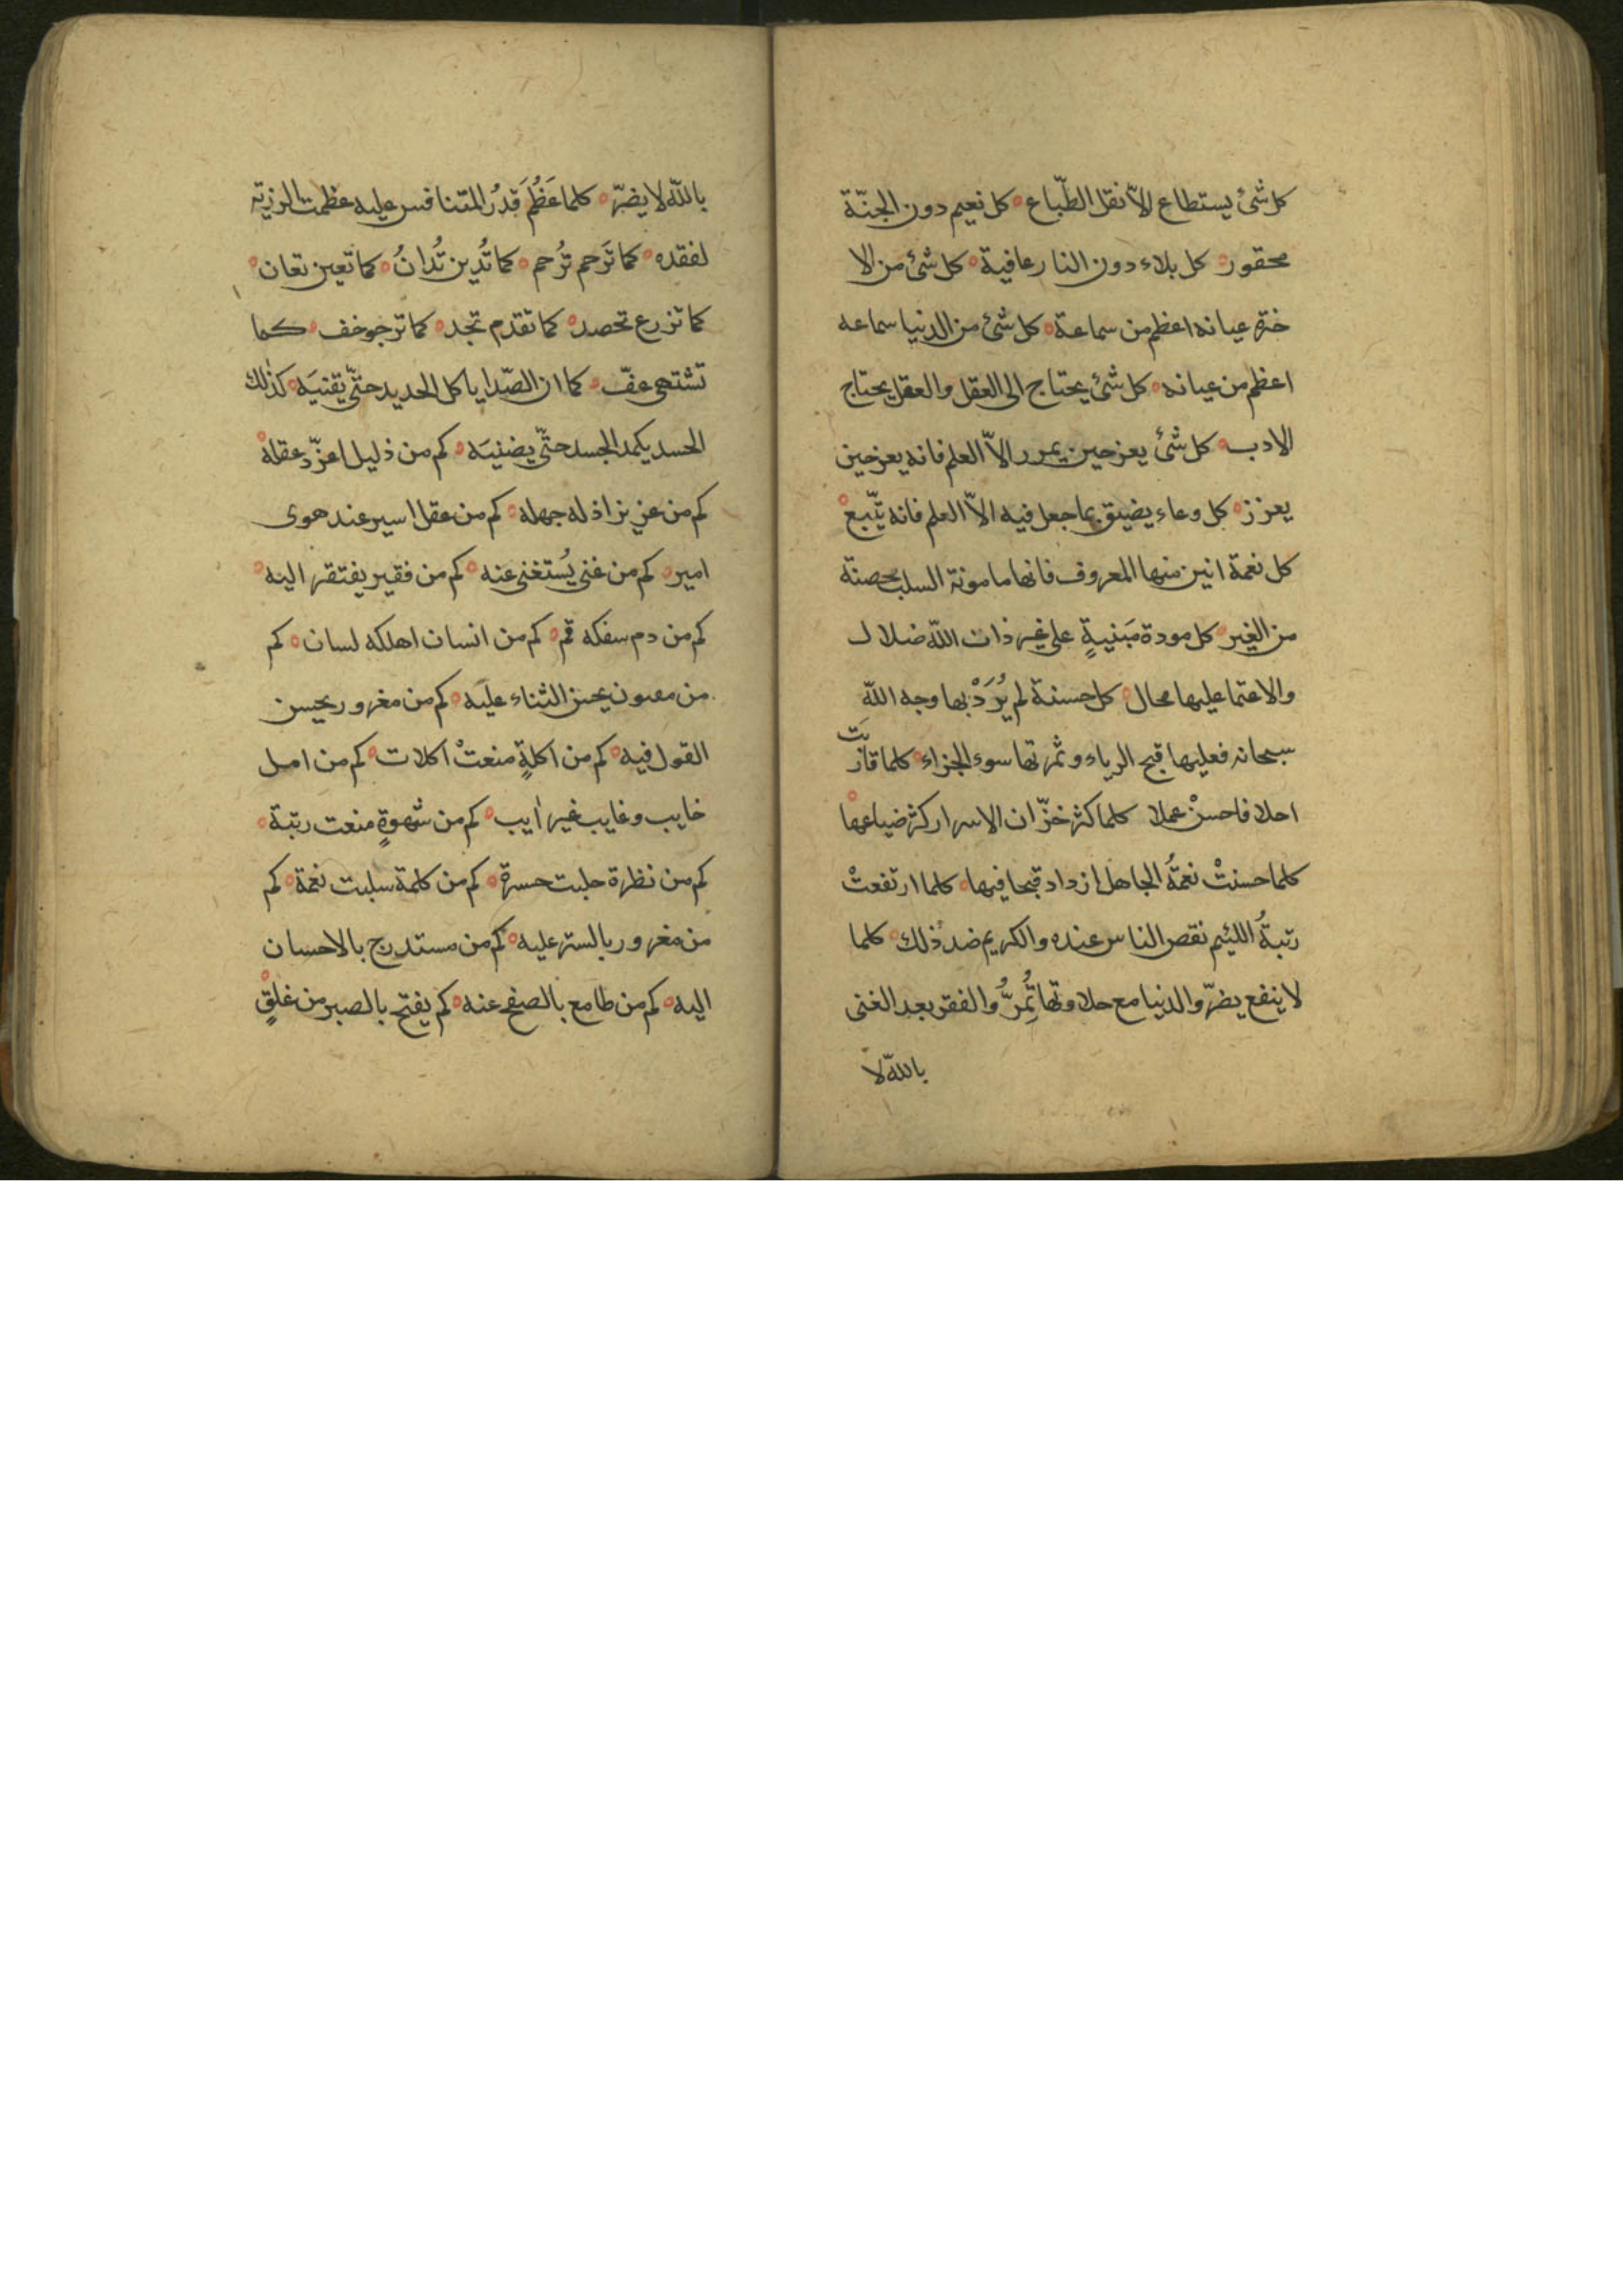 كل شئ يستطاع الاّ نقل الطّباع ه كل نعيم دون الجنّة
محقور ه كل بلاء دون النار عافية ه كل شئ من الا
خرة عيانه اعظم من سماعة ه كل شئ من الدنيا سماعه
اعظم من عيانه ه كل شئ يحتاج الى العقل والعقل يحتاج
الادب ه كل شئ يعز حين الاّ العلم فانه يعز حين
يعزز ه كل وعاء يضيق بما جعل فيه الاّ العلم فانه
كل نعمة منها المعروف فانها مامونة السلب محصنة
من الغير ه كل مودة مَبنيةٍ على غير ذات اللّه ضلال
والاعتما عليها محال ه كل حسنة لم يُرَدْ بها وجه اللّه
سبحانه فعليها قبح الرياء وثمرتها سوء الجزاء ه كلما قاربَت
اجلا فاحسنْ عملا كلما كثر خزّان الاسرار كثر ضياعها ه
كلما حسنتْ نعمةُ الجاهل ازداد قبحا فيها ه كلما ارتفعتْ
رتبةُ اللئيم نقص الناس عنده والكريم ضد ذلك ه كلما
لا ينفع يضرّ والدنيا مع حلاوتها تُمرُّ والفقر بعد الغنى
باللّه لا
باللّه لا يضرّ ه كلما عَظُمَ قدرُ المتنافس عليه عظمت الرزية
لفقده ه كما تَرحم تُرحم ه كما تُدين تُدانُ ه كما تعين تعان ه
كما تزرع تحصد ه كما تقدم تجد ه كما ترجو خف ه كما
تشتهى عفّ ه كما ان الصّدا ياكل الحديد حتّى يفنيَه ه كذلك
الحسد يكمد الجسد حتّى يضنيَه ه كم من ذليل اعزّه عقله ه
كم من عزيز اذله جهله ه كم من عقل اسير عند هوى
امير ه كم من غنى يُستغنى عنه ه كم من فقير يفتقر اليه ه
كم من دم سفكه فم ه كم من انسان اهلكه لسان ه كم
من مفتون يحسن الثناء عليه ه كم من مغرور بحسن
القول فيه ه كم من اكلةٍ منعتْ اكلات ه كم من امل
خايب وغايب غير ايب ه كم من شهوةٍ منعت رتبة ه
كم من نظرة جلبت حسرة ه كم من كلمة سلبت نعمة ه كم
من مغرور بالستر عليه ه كم من مستدرج بالاحسان
اليه ه كم من طامع بالصفح عنه ه كم يفتح بالصبر من غلقٍ ه